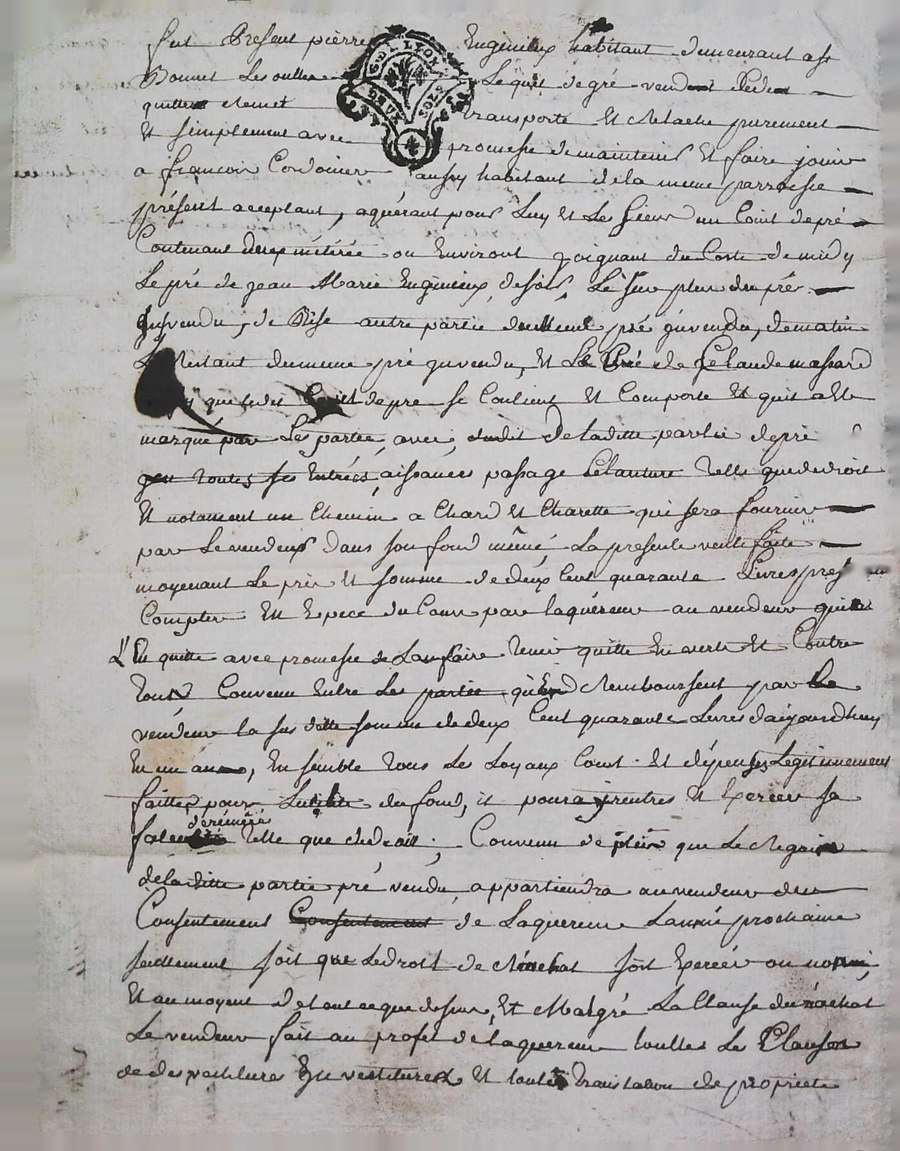 fut Present pierre Enginieux habitant demeurant a st
Bonnet Les oulles Lequel de gré vend Cede
quitte remet transporte Et Relache purement
Et simplement avec promesse de maintenir Et faire jouir
a francois Cordonier aussy habitant de la meme parroisse
présent acceptant, aquérant pour Luy Et Les siens un Coint de pré
Contenant deux métérée ou Environt joignant du Coste de midy
Le pré de jean Marie Enginieux, de soir, Le sur plus du pré
jusvendu, de Bise autre partie du pré jusvendu, de matin
Le Restant du meme pré jusvendu, Et Le Pré de Claude massard
que Coint de pre se Contient Et Comporte Et quil a Ete
marqué par Les partie, avec de laditte partie de pré
toutes ses Entrées, aissances passage telle que de droit
Et notament un Chemin a Chard Et Charette qui sera fournir
par Le vendeur dans son fond même, La presente vente faite
moyenant Le prix Et somme de deux Cent quarante Livres
Compter En Epece du Cour par laquéreur au vendeur
L'En quitte avec promesse de Lan faire tenir quitte En vert Et Contre
tous Convenu Entre Les partie Remboursent par Le
vendeur la sus ditte somme de deux Cent quarante Livres d'aujourdhuy
En un an, En semble tous Les Loyaux Cout Et dépenses Legitimement
faittes pour du fond, il poura y rentrer Et Exercer sa
faculté de réméré telle que de droit. Convenu de plus que Le Regain
de laditte partie pré vendu appartiendra au vendeur du
Consentement Consentement de Laquereur Lannée prochaine
seulement soit que Le droit de Rachat soit Exercér ou non,
Et au moyent de tout ce que dessus, Et Malgré La Clause du rachat
Le vendeur fait au profit de laquereur toutes Les Clauses
de desvestiture Investitures Et toute translation de propriete